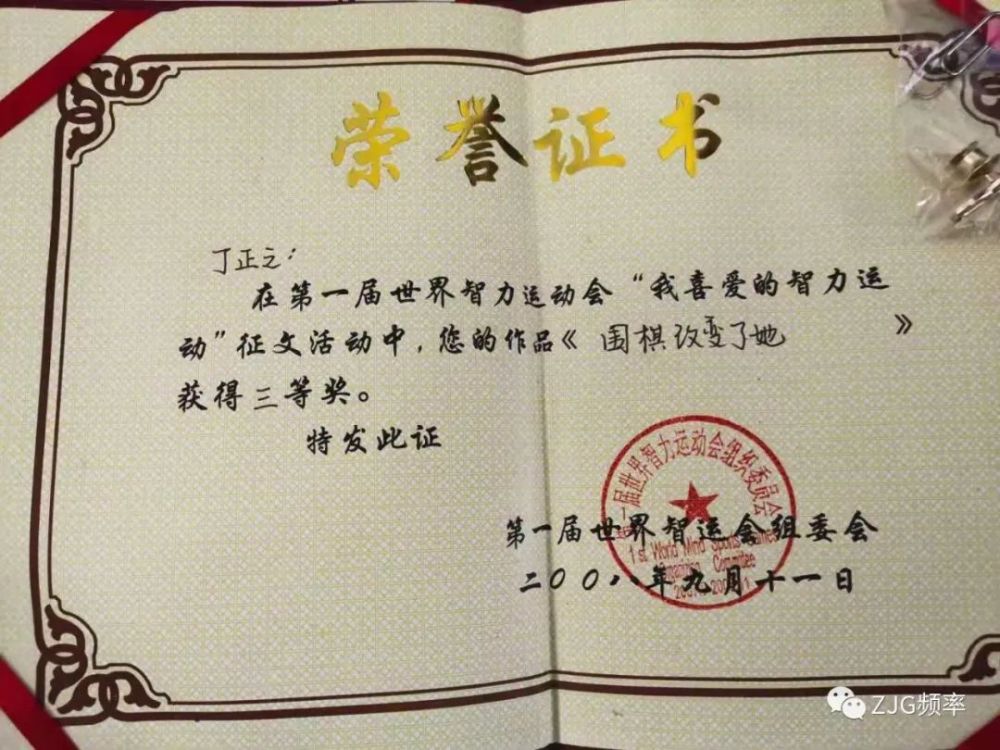 荣誉证书
丁正之：
在第一届世界智力运动会“我喜爱的智力运
动”征文活动中，您的作品《 围棋改变了她 》
获得三等奖。
特发此证
第一届世界智力运动会组织委员会
1st World Mind Sports Games
Organizing Committee
第一届世界智运会组委会
二〇〇八年九月十一日
ZJG频率